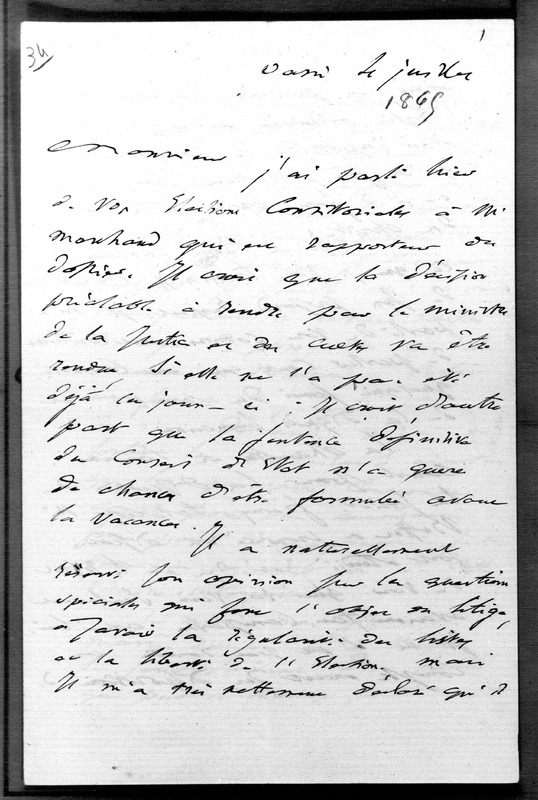 34
1
Paris 4 juillet
1869
Monsieur j'ai parlé hier
de vos Elections Consistoriales à M
Marchand qui est rapporteur du
dossier. Il croit que la décision
préalable à rendre par le ministre
de la Justice et des cultes va être
rendue, si elle ne l'a pas été
déjà ces jours-ci. Il croit d'autre
part que la sentence définitive
du Conseil d'Etat n'a guère
de chances d'être formulée avant
les vacances. Il a naturellement
réservé son opinion sur les questions
spéciales qui font l'objet du litige,
à savoir la régularité des listes
et la liberté de l'Election. mais
Il m'a très nettement déclaré qu'il